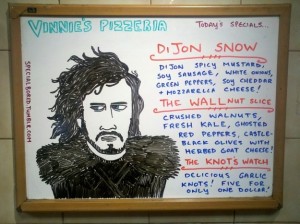 VINNIE'S PIZZERIA
TODAY'S SPECIALS...
DiJON SNOW
DiJON SPICY MUSTARD,
SOY SAUSAGE, WHITE ONIONS,
GREEN PEPPERS, SOY CHEDDAR
+ MOZZARELLA CHEESE!
THE WALLNUT SLICE
CRUSHED WALNUTS,
FRESH KALE, GHOSTED
RED PEPPERS, CASTLE-
BLACK OLIVES WITH
HERBED GOAT CHEESE!
THE KNOT'S WATCH
DELICIOUS GARLIC
KNOTS! FIVE FOR
ONLY ONE DOLLAR!
SPECIALBOARD.TUMBLR.COM